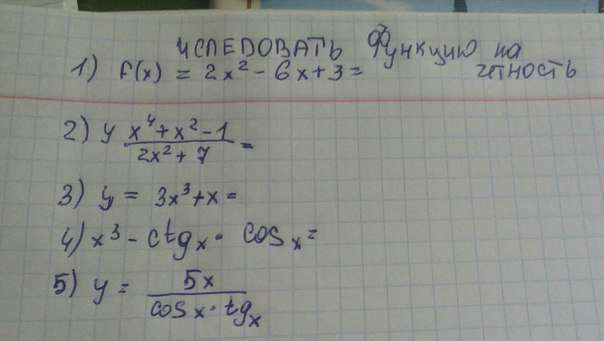 ИСЛЕДОВАТЬ Функцию на
1) f(x) = 2x² - 6x + 3 = чтность
2) y x⁴ + x² - 1 / 2x² + 7 =
3) y = 3x³ + x =
4) x³ - ctg x · cos x =
5) y = 5x / cos x · tg x